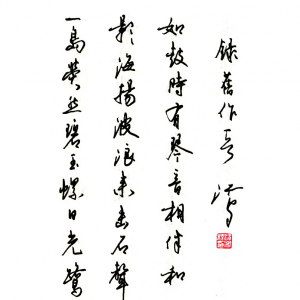 一島煢然碧玉螺日光鷺
影海揚波浪來擊石聲
如鼓時有琴音相伴和
錄舊作